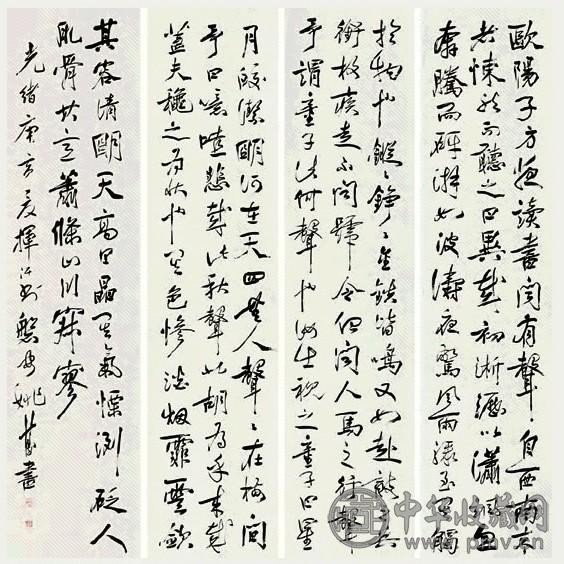 歐陽子方夜讀書聞有聲自西南來
者悚然而聽之曰異哉初淅瀝以瀟颯忽
奔騰而砰湃如波濤夜驚風雨驟至其觸
於物也鏦々錚々金鐵皆鳴又如赴敵之兵
銜枚疾走不聞號令但聞人馬之行聲
予謂童子此何聲也汝出視之童子曰星
月皎潔明河在天四無人聲々在樹間
予曰噫嘻悲哉此秋聲也胡為乎來哉
蓋夫秋之為狀也其色慘淡烟霏雲斂
其容清明天高日晶其氣慄冽砭人
肌骨其意蕭條山川寂寥
光緒庚寅夏揮汗 姚 書
中华收藏网
www.pmv.cn